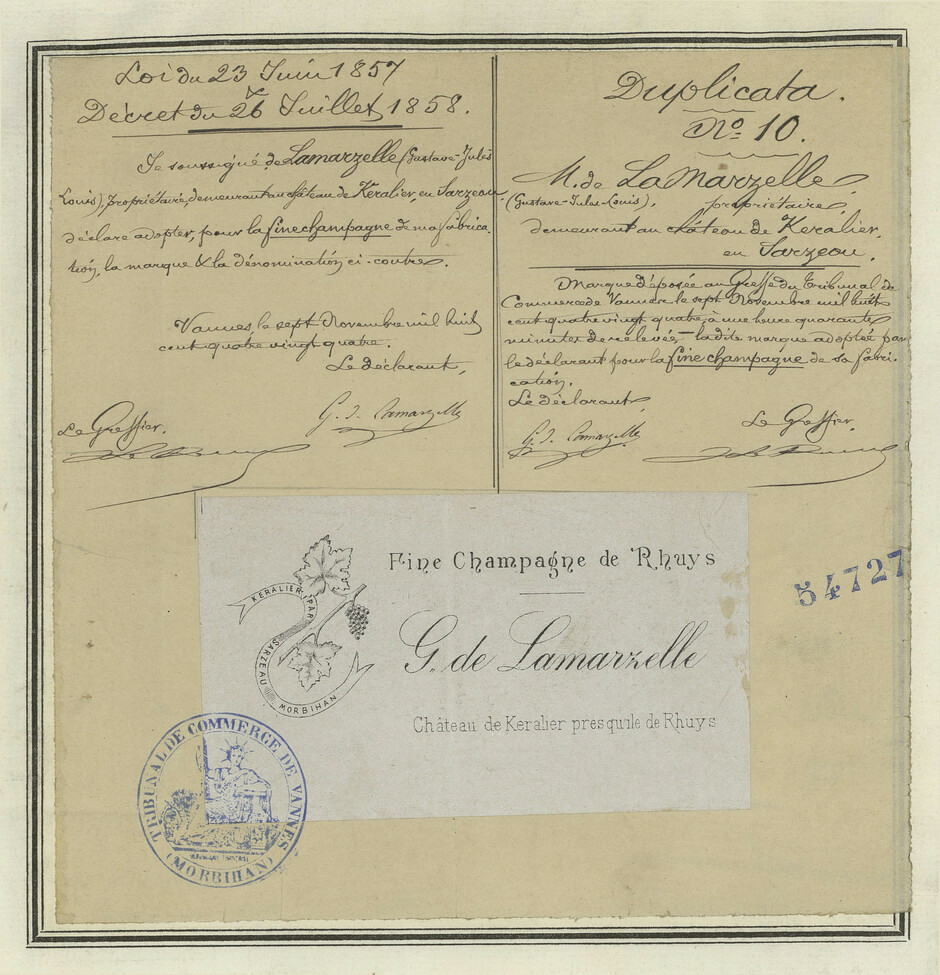 Loi du 23 Juin 1857
Décret du 26 Juillet 1858.
Je soussigné, de Lamarzelle (Gustave-Jules
Louis), propriétaire, demeurant au château de Keralier, en Sarzeau,
déclare adopter, pour la fine champagne de ma fabrica-
tion, la marque & la dénomination ci-contre.
Vannes, le sept Novembre mil huit
cent quatre vingt quatre.
Le déclarant,
G. J. Lamarzelle
Le Greffier,
Duplicata.
No 10.
M. de LaMarzelle,
(Gustave-Jules-Louis), propriétaire,
demeurant au château de Keralier,
en Sarzeau.
Marque déposée au Greffe du Tribunal de
Commerce de Vannes le sept Novembre mil huit
cent quatre vingt quatre, à une heure quarante
minutes de relevée, ladite marque adoptée par
le déclarant pour la fine champagne de sa fabri-
cation.
Le déclarant,
G. J. Lamarzelle
Le Greffier,
Fine Champagne de Rhuys
G. de Lamarzelle
Château de Keralier presquile de Rhuys
KERALIER PAR
SARZEAU
MORBIHAN
54727
TRIBUNAL DE COMMERCE DE VANNES
(MORBIHAN)